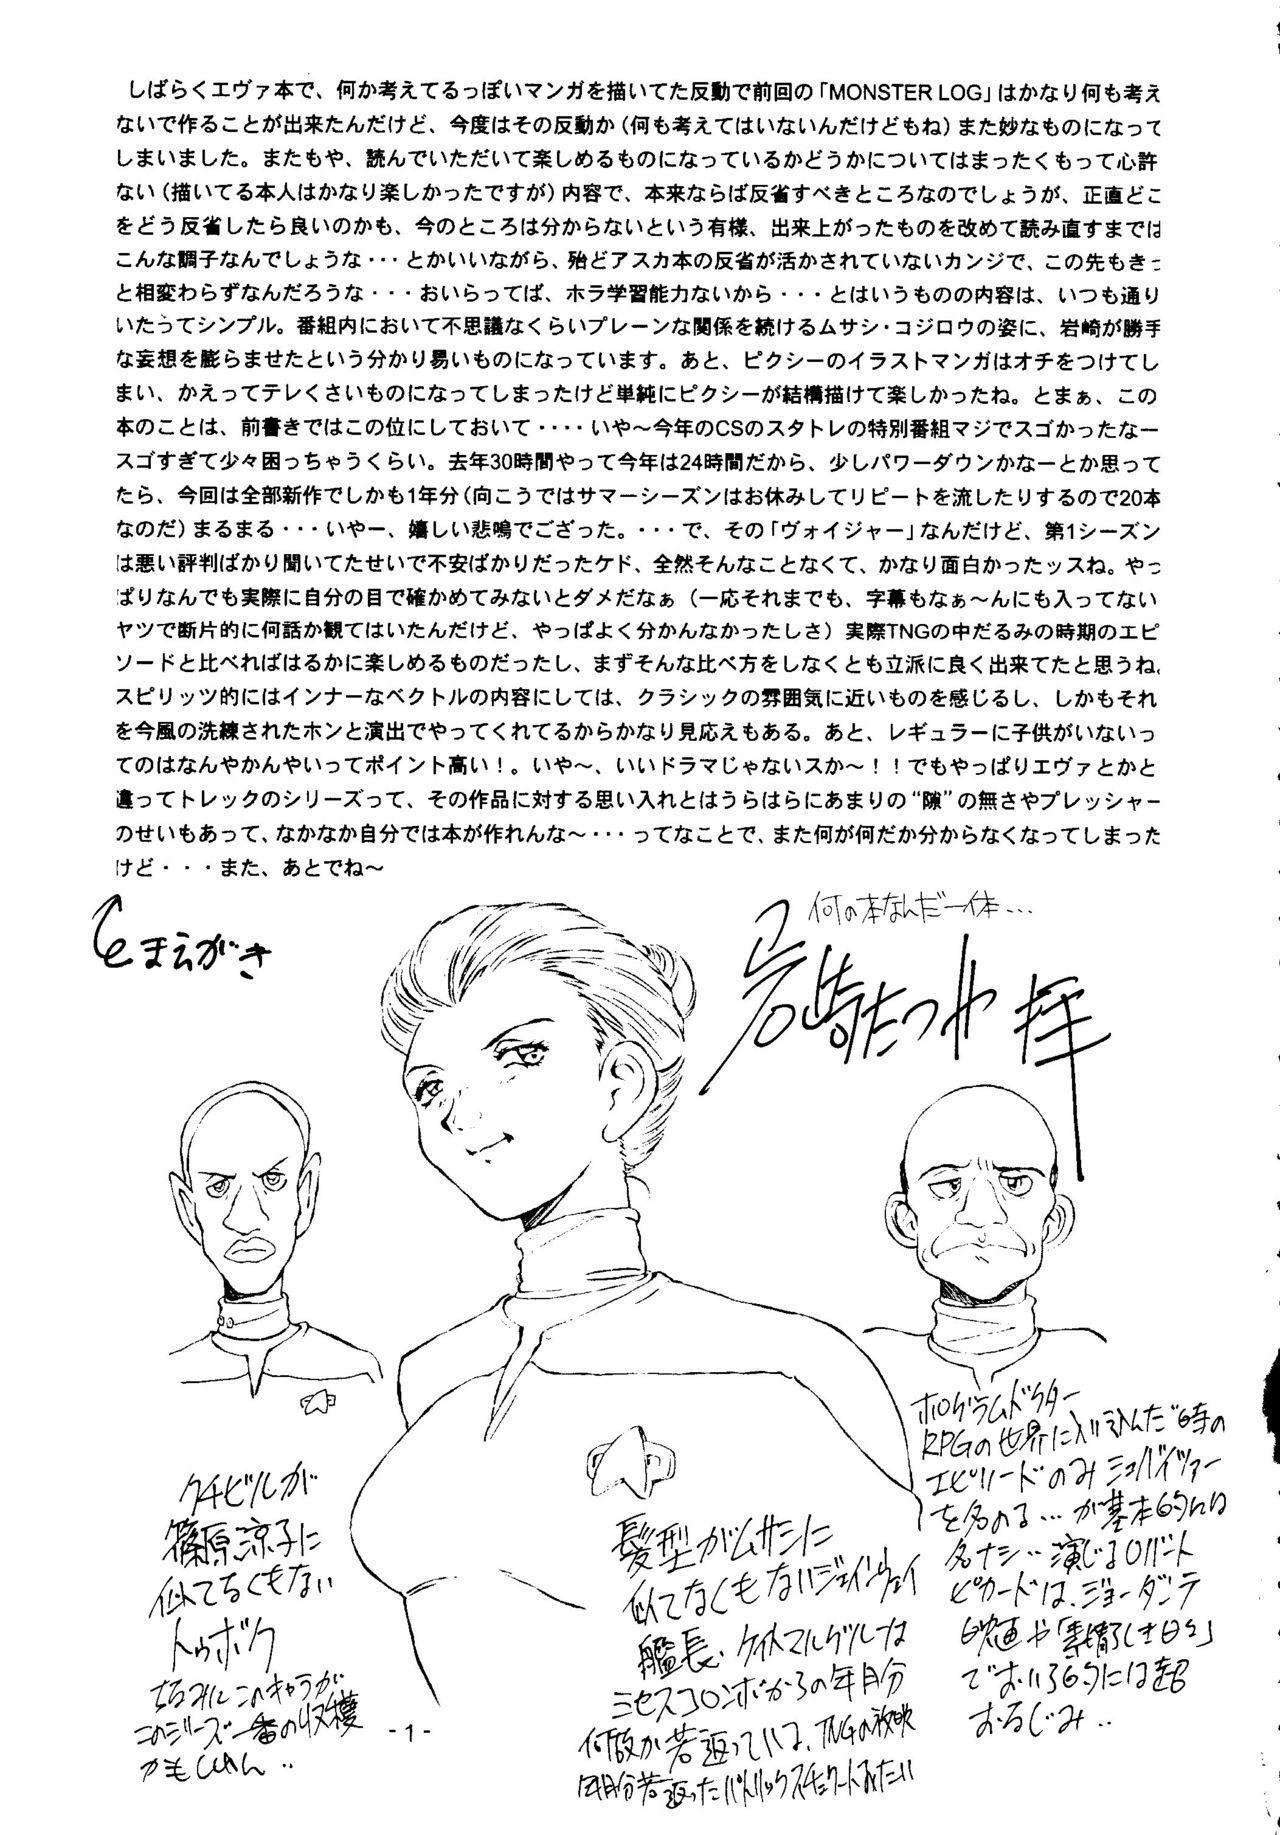 しばらくエヴァ本で、何か考えてるっぽいマンガを描いてた反動で前回の「MONSTER LOG」はかなり何も考え
ないで作ることが出来たんだけど、今度はその反動か（何も考えてはいないんだけどもね）また妙なものになって
しまいました。またもや、読んでいただいて楽しめるものになっているかどうかについてはまったくもって心許
ない（描いてる本人はかなり楽しかったですが）内容で、本来ならば反省すべきところなのでしょうが、正直どこ
をどう反省したら良いのかも、今のところは分からないという有様、出来上がったものを改めて読み直すまでは
こんな調子なんでしょうな・・・とかいいながら、殆どアスカ本の反省が活かされていないカンジで、この先もきっ
と相変わらずなんだろうな・・・おいらってば、ホラ学習能力ないから・・・とはいうものの内容は、いつも通り
いたってシンプル。番組内において不思議なくらいプレーンな関係を続けるムサシ・コジロウの姿に、岩崎が勝手
な妄想を膨らませたという分かり易いものになっています。あと、ピクシーのイラストマンガはオチをつけてし
まい、かえってテレくさいものになってしまったけど単純にピクシーが結構描けて楽しかったね。とまぁ、この
本のことは、前書きではこの位にしておいて・・・・いや〜今年のCSのスタトレの特別番組マジでスゴかったなー
スゴすぎて少々困っちゃうくらい。去年30時間やって今年は24時間だから、少しパワーダウンかなーとか思って
たら、今回は全部新作でしかも1年分（向こうではサマーシーズンはお休みしてリピートを流したりするので20本
なのだ）まるまる・・・いやー、嬉しい悲鳴でござった。・・・で、その「ヴォイジャー」なんだけど、第1シーズン
は悪い評判ばかり聞いてたせいで不安ばかりだったケド、全然そんなことなくて、かなり面白かったッスね。やっ
ぱりなんでも実際に自分の目で確かめてみないとダメだなぁ（一応それまでも、字幕もなぁ〜んにも入ってない
ヤツで断片的に何話か観てはいたんだけど、やっぱよく分かんなかったしさ）実際TNGの中だるみの時期のエピ
ソードと比べればはるかに楽しめるものだったし、まずそんな比べ方をしなくとも立派に良く出来てたと思うね。
スピリッツ的にはインナーなベクトルの内容にしては、クラシックの雰囲気に近いものを感じるし、しかもそれ
を今風の洗練されたホンと演出でやってくれてるからかなり見応えもある。あと、レギュラーに子供がいないっ
てのはなんやかんやいってポイント高い！。いや〜、いいドラマじゃないスか〜！！でもやっぱりエヴァとかと
違ってトレックのシリーズって、その作品に対する思い入れとはうらはらにあまりの“隙”の無さやプレッシャー
のせいもあって、なかなか自分では本が作れんな〜・・・ってなことで、また何が何だか分からなくなってしまった
けど・・・また、あとでね〜
とまえがき
何の本なんだ一体...
岩崎たつや 拝
クチビルが
篠原涼子に
似てなくもない
トゥボク
ちなみにこのキャラが
このシリーズ一番の収穫
かもしれん..
髪型がムサシに
似てなくもないジェインウェイ
艦長、ケイトマルグルーは
ミセスコロンボからの年月分
何故か若返っている、TNGの放映
年月分若返ったパトリックスチュワートみたい
ホログラムドクター
RPGの世界に入り込んだ時の
エピソードのみシュバイツァー
を名のる...が基本的には
名ナシ..演じるロバート
ピカードは、ジョーダンテ
映画や「素晴らしき日々」
でおいら的には超
おなじみ..
-1-